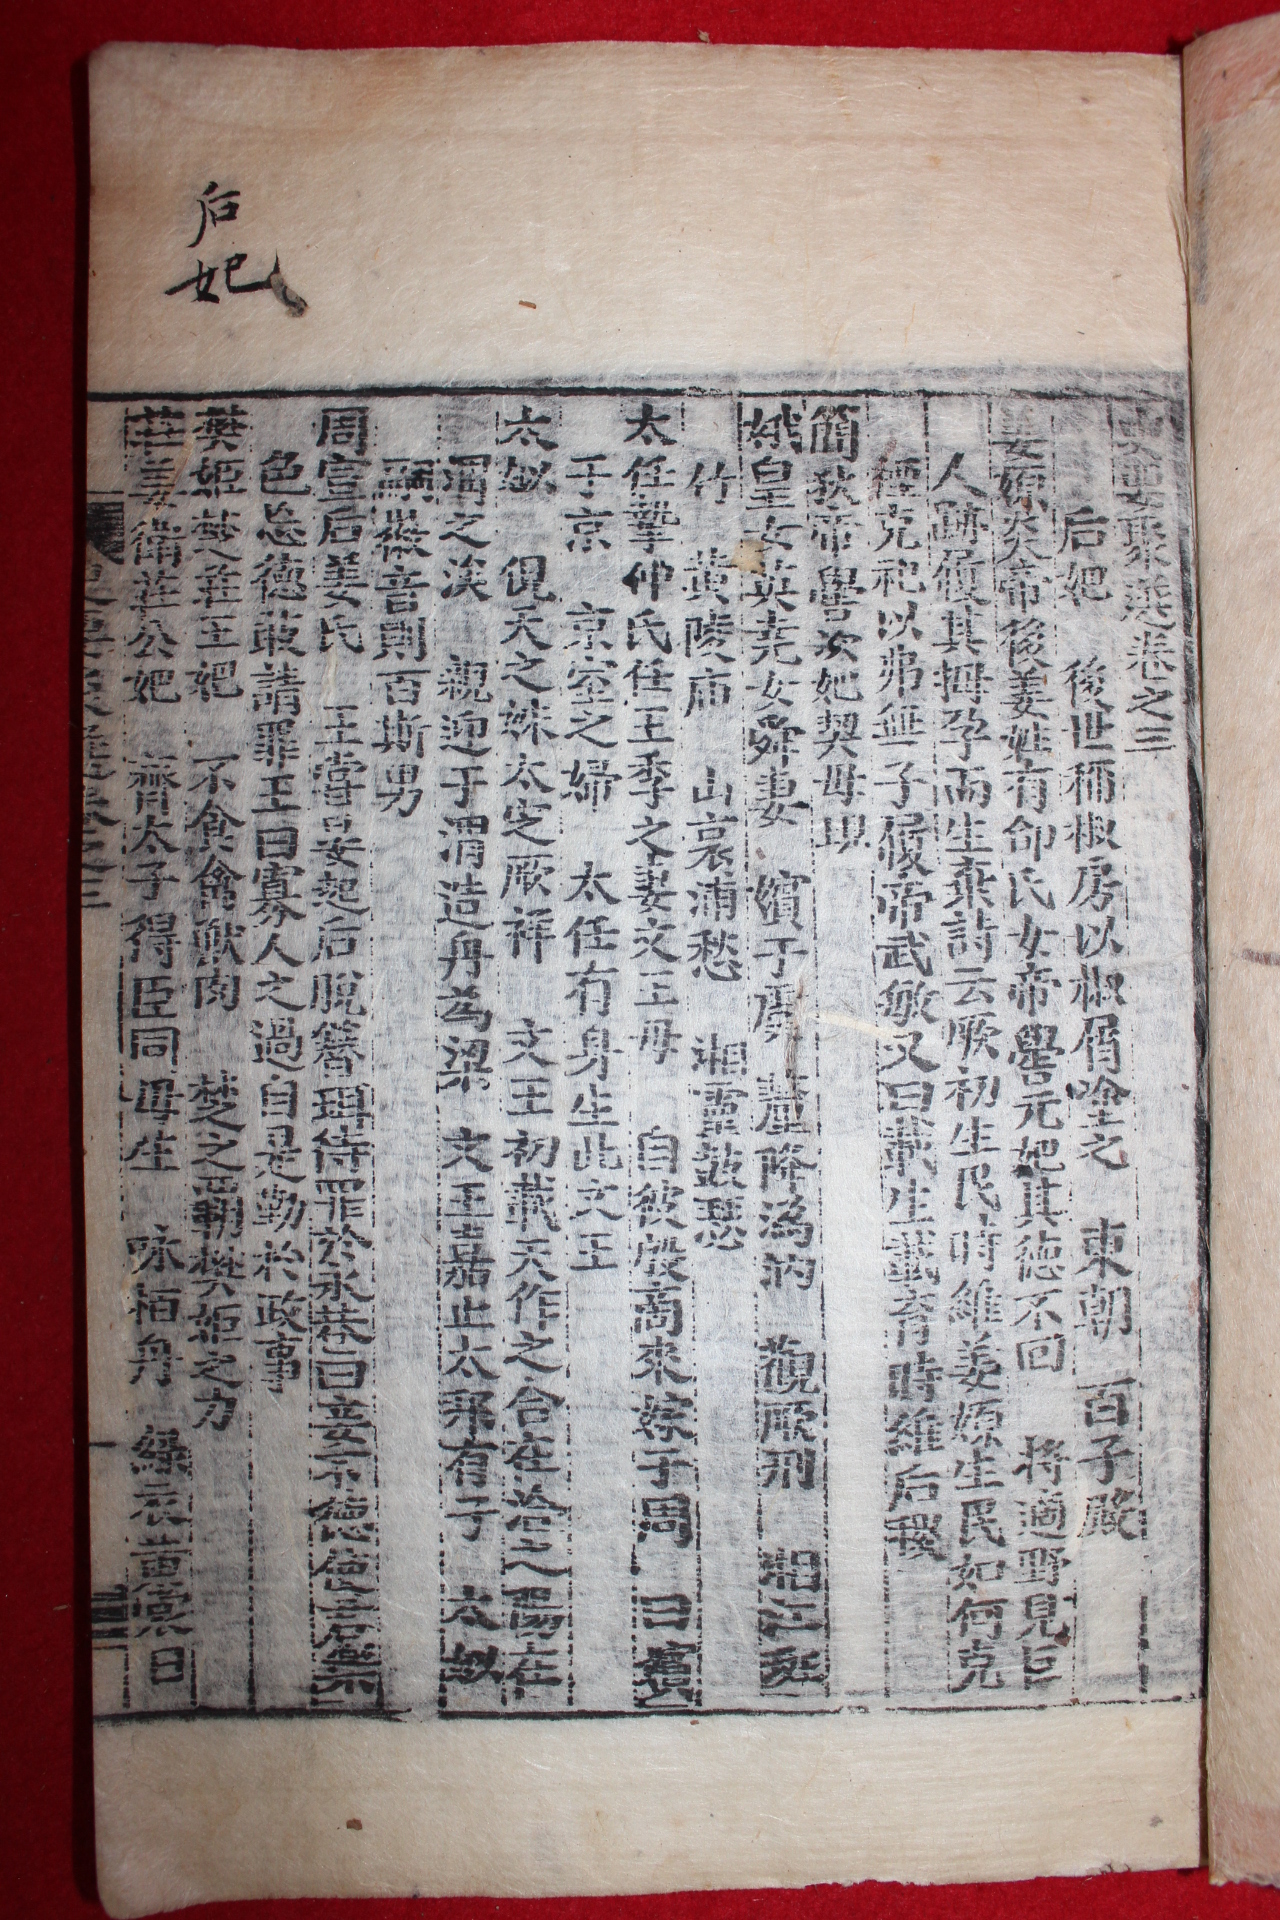 史要聚選卷之三
后妃　後世稱椒房以椒屑塗之　東朝　百子殿
姜嫄炎帝後姜姓有邰氏女帝嚳元妃其德不回　將適野見巨
人跡履其拇孕而生棄詩云厥初生民時維姜嫄生民如何克
禋克祀以弗無子履帝武敏又曰載生載育時維后稷
簡狄帝嚳次妃契母
娥皇女英堯女舜妻　嬪于虞　釐降潙汭　觀厥刑　湘江班
竹　黃陵庙　山哀浦愁　湘靈皷瑟
太任摯仲氏任王季之妻文王母　自彼殷商來嫁于周　曰嬪
于京　京室之婦　太任有身生此文王
太姒　俔天之妹太定厥祥　文王初載天作之合在洽之陽在
渭之涘　親迎于渭造舟為梁　文王嘉止太邦有子　太姒
嗣徽音則百斯男
周宣后姜氏　王嘗晏起后脫簪珥待罪於永巷曰妾不德使君樂
色忘德敢請罪王曰寡人之過自是勤於政事
樊姬楚庄王妃　不食禽獸肉　楚之覇樊姬之力
莊姜衛莊公妃　齊太子得臣同母生　咏栢舟　綠衣黃裳　日
后
妃